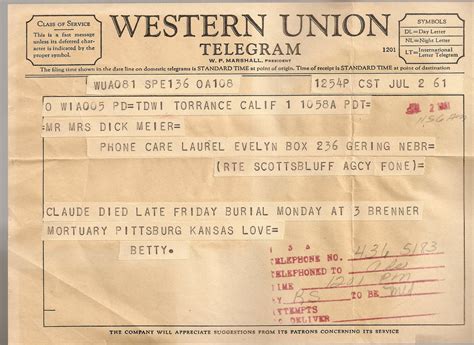 CLASS OF SERVICE
This is a fast message
unless its deferred char-
acter is indicated by the
proper symbol.
WESTERN UNION
TELEGRAM
W. P. MARSHALL, PRESIDENT
1201
SYMBOLS
DL=Day Letter
NL=Night Letter
LT=International Letter Telegram
The filing time shown in the date line on domestic telegrams is STANDARD TIME at point of origin. Time of receipt is STANDARD TIME at point of destination
WUA081 SPE136 OA108
1254P CST JUL 2 61
O WIA005 PD=TDWI TORRANCE CALIF 1 1058A PDT=
MR MRS DICK MEIER=
PHONE CARE LAUREL EVELYN BOX 236 GERING NEBR=
(RTE SCOTTSBLUFF AGCY FONE)=
CLAUDE DIED LATE FRIDAY BURIAL MONDAY AT 3 BRENNER
MORTUARY PITTSBURG KANSAS LOVE=
BETTY.
TELEPHONE NO. 436 5183
TELEPHONED TO
TIME 1201 PM
BY RS TO BE
ATTEMPTS
TO DELIVER
THE COMPANY WILL APPRECIATE SUGGESTIONS FROM ITS PATRONS CONCERNING ITS SERVICE